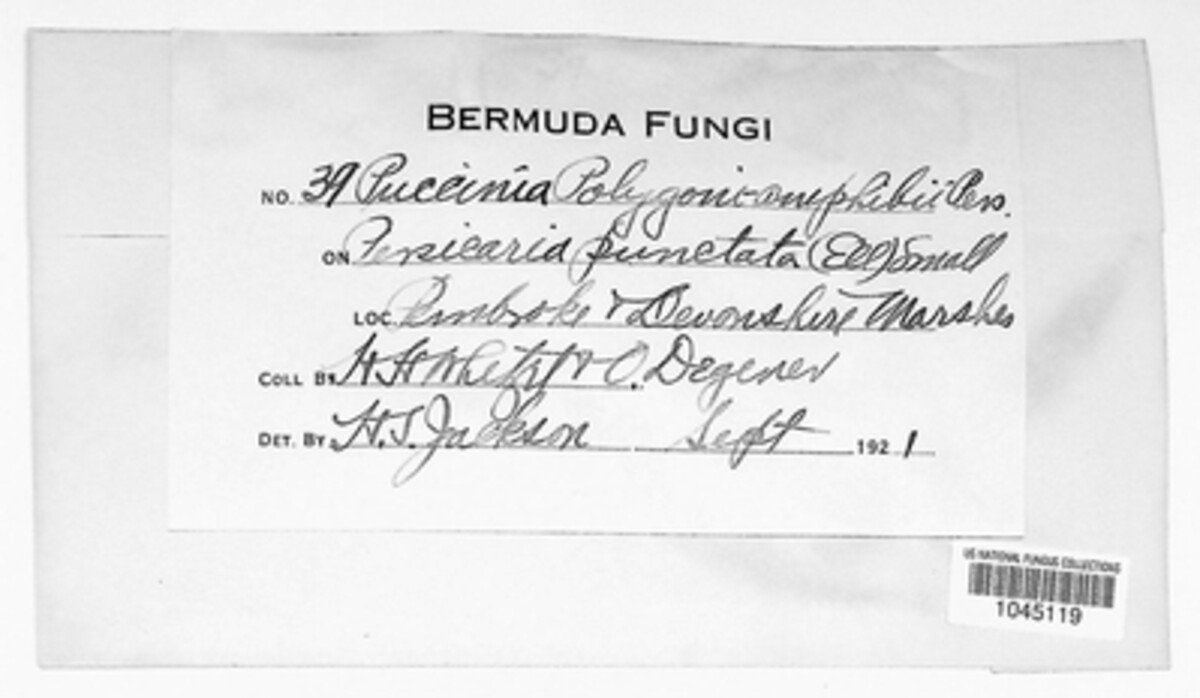 BERMUDA FUNGI
NO. 39 Puccinia Polygoni-amphibii Pers.
ON Persicaria punctata (Ell) Small
LOC. Pembroke & Devonshire Marshes
COLL BY H H Whetzel & O. Degener
DET. BY H.S. Jackson Sept 1921
US NATIONAL FUNGUS COLLECTIONS
1045119